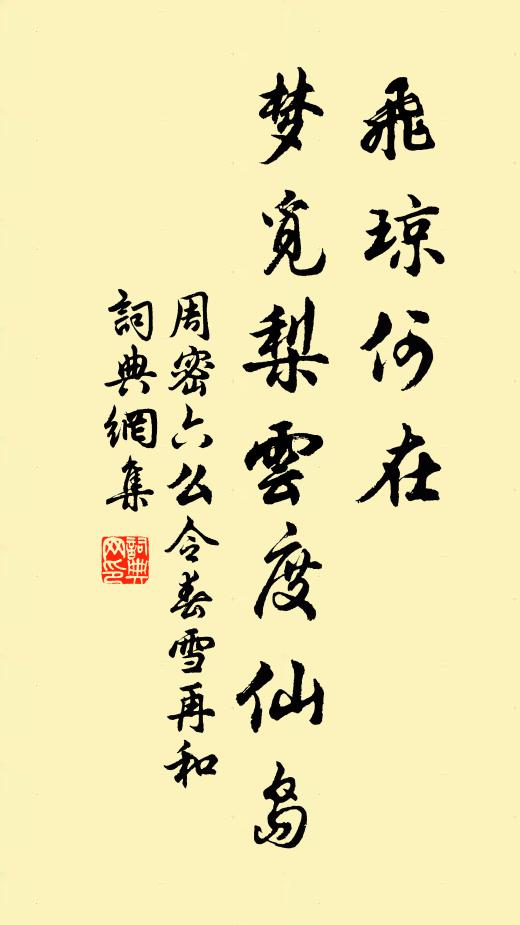 飛琼何在
梦覓梨雲度仙島
周密六么令春雪再和
詞典網集
詞典网印